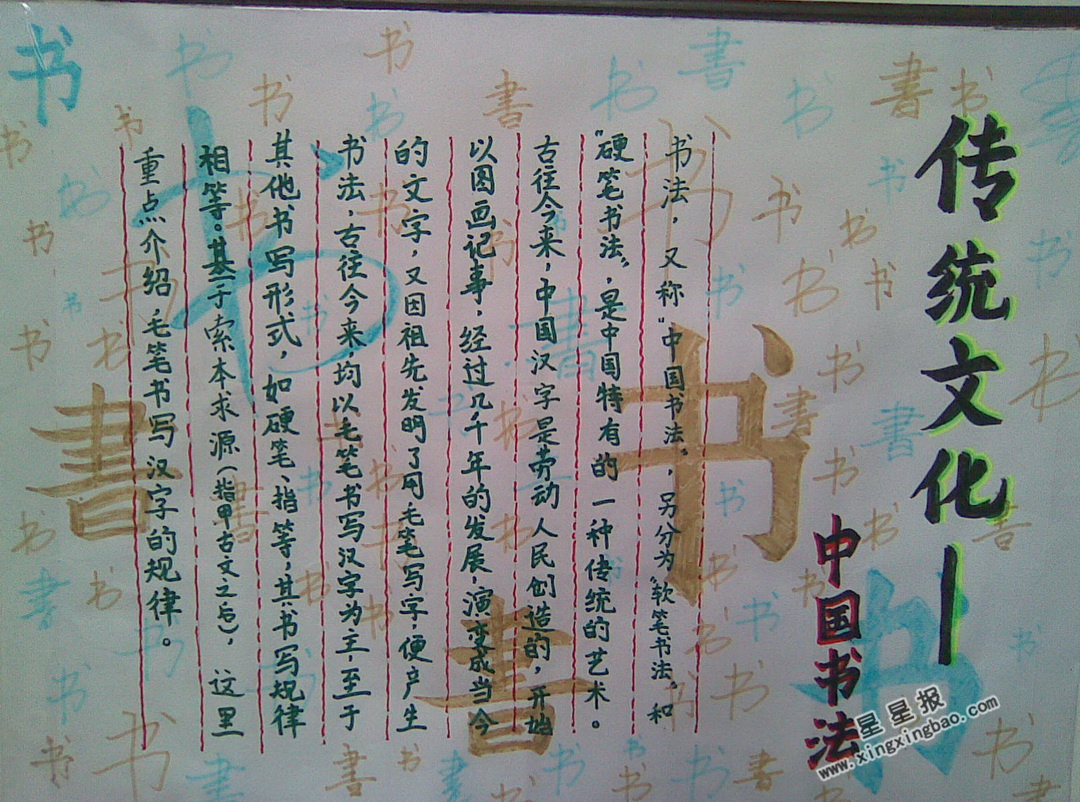 传统文化—
中国书法
书法，又称“中国书法”，另分为“软笔书法”和
“硬笔书法”，是中国特有的一种传统的艺术。
古往今来，中国汉字是劳动人民创造的，开始
以图画记事，经过几千年的发展，演变成当今
的文字，又因祖先发明了用毛笔写字便产生
书法，古往今来，均以毛笔书写汉字为主，至于
其他书写形式，如硬笔、指等，其书写规律
相等。基于索本求源（指甲古文之后），这里
重点介绍毛笔书写汉字的规律。
书
書
书
書
书
星星报
www.xingxingbao.com